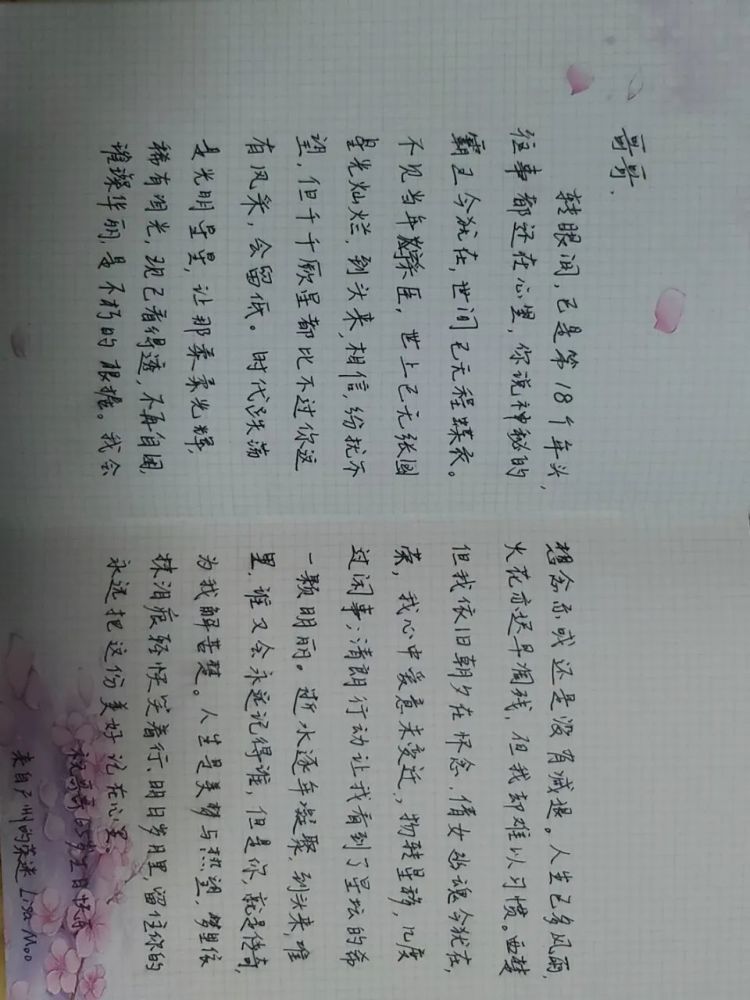 哥哥、
转眼间,已是第18个年头,想念亦或还是没有减退。人生已多风雨,
往事都还在心里,你说神秘的火花亦迟早凋残,但我却难以习惯。西楚
霸王今犹在,世间已无程蝶衣。但我依旧朝夕在怀念,倩女幽魂今犹在,
不见当年采臣,世上已无张国荣,我心中爱意未变迁,物转星移,几度
星光灿烂,到头来,相信,纷扰不过闲事;清朗行动让我看到了星坛的希
望,但千千厥星都比不过你这一颗明丽。逝水逐年凝聚,到头来谁
有风采,会留低。时代跌荡里,谁又会永远记得谁,但是你,就是传奇,
是光明星星,让那柔柔光辉,为我解苦楚。人生是美梦与热望,梦里依
稀有泪光,现已看得透,不再自困,抹泪痕轻快笑着行、明日岁月里,留住你的
璀璨华丽,是不朽的根据。我会永远把这份美好记在心里。
祝哥哥65岁生日快乐
来自广州的荣迷 Lisa Moo